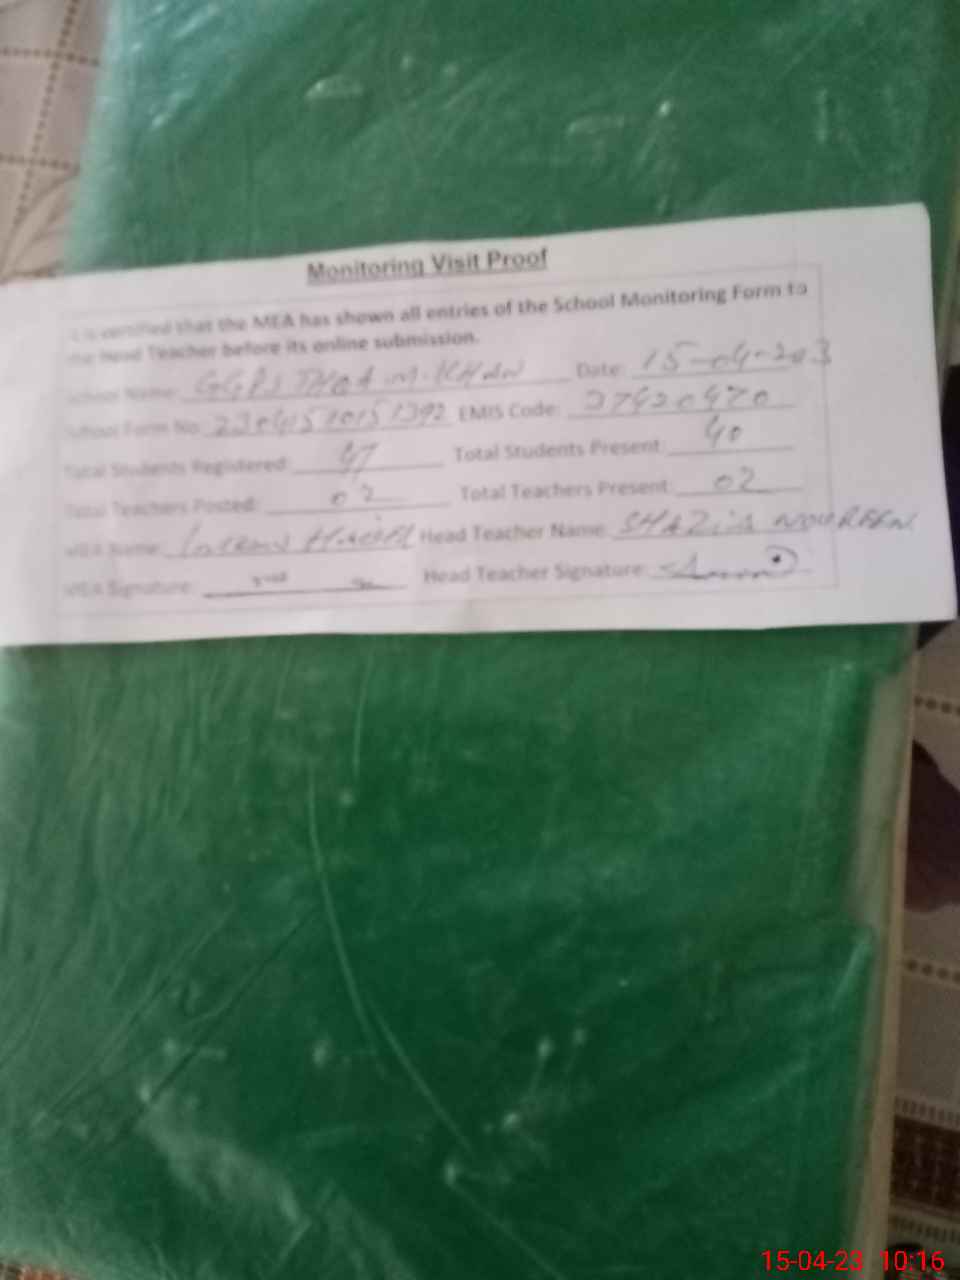 Monitoring Visit Proof
It is certified that the MEA has shown all entries of the School Monitoring Form to
the Head Teacher before its online submission.
School Name: GGPS THQ A.M.KHAN Date: 15-04-203
School Form No: EMIS Code: 37420470
Total Students Registered: 47 Total Students Present: 40
Total Teachers Posted: 02 Total Teachers Present: 02
MEA Name: Head Teacher Name: SHAZiA NOUREEN
MEA Signature: Head Teacher Signature:
15-04-23 10:16